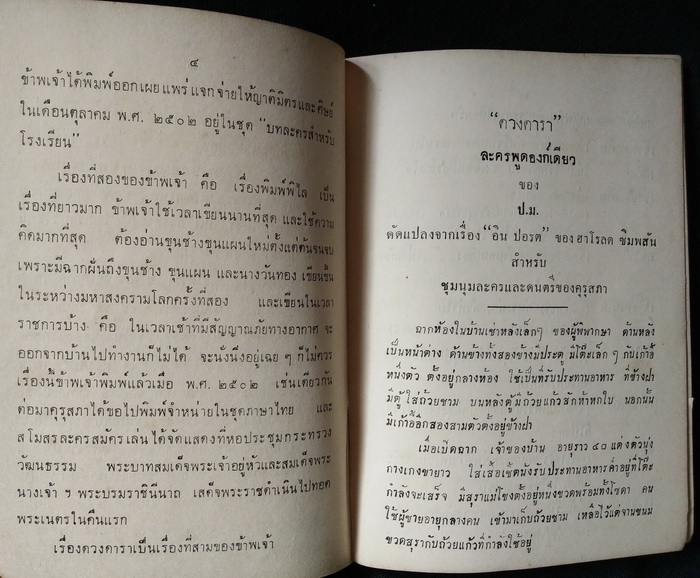 ๔
ข้าพเจ้าได้พิมพ์ออกเผยแพร่แจกจ่ายให้ญาติมิตรและศิษย์
ในเดือนตุลาคม พ.ศ. ๒๕๐๒ อยู่ในชุด "บทละครสำหรับ
โรงเรียน"
เรื่องที่สองของข้าพเจ้า คือ เรื่องพิมพ์พิไล เป็น
เรื่องที่ยาวมาก ข้าพเจ้าใช้เวลาเขียนนานที่สุด และใช้ความ
คิดมากที่สุด ต้องอ่านขุนช้างขุนแผนใหม่ตั้งแต่ต้นจนจบ
เพราะมีฉากฝันถึงขุนช้าง ขุนแผน และนางวันทอง เขียนขึ้น
ในระหว่างมหาสงครามโลกครั้งที่สอง และเขียนในเวลา
ราชการบ้าง คือ ในเวลาเช้าที่มีสัญญาณภัยทางอากาศ จะ
ออกจากบ้านไปทำงานก็ไม่ได้ จะนั่งนิ่งอยู่เฉย ๆ ก็ไม่ควร
เรื่องนี้ข้าพเจ้าพิมพ์แล้วเมื่อ พ.ศ. ๒๕๐๒ เช่นเดียวกัน
ต่อมาคุรุสภาได้ขอไปพิมพ์จำหน่ายในชุดภาษาไทย และ
สโมสรละครสมัครเล่นได้จัดแสดงที่หอประชุมกระทรวง
วัฒนธรรม พระบาทสมเด็จพระเจ้าอยู่หัวและสมเด็จพระ
นางเจ้า ฯ พระบรมราชินีนาถ เสด็จพระราชดำเนินไปทอด
พระเนตรในคืนแรก
เรื่องดวงดาราเป็นเรื่องที่สามของข้าพเจ้า
"ดวงดารา"
ละครพูดองก์เดียว
ของ
ป.ม.
ดัดแปลงจากเรื่อง "อิน ปอรต" ของฮาโรลด ซิมพสัน
สำหรับ
ชุมนุมละครและดนตรีของคุรุสภา
ฉากห้องในบ้านเช่าหลังเล็กๆ ของผู้พิพากษา ด้านหลัง
เป็นหน้าต่าง ด้านข้างทั้งสองข้างมีประตู มีโต๊ะเล็ก ๆ กับเก้าอี้
หนึ่งตัว ตั้งอยู่กลางห้อง ใช้เป็นที่รับประทานอาหาร ที่ข้างฝา
มีตู้ใส่ถ้วยชาม บนหลังตู้มีถ้วยแก้วสักห้าหกใบ นอกนั้น
มีเก้าอี้อีกสองสามตัวตั้งอยู่ข้างฝา
เมื่อเปิดฉาก เจ้าของบ้าน อายุราว ๔๐ แต่งตัวนุ่ง
กางเกงขายาว ใส่เสื้อเชิ้ตนั่งรับประทานอาหารค่ำอยู่ที่โต๊ะ
กำลังจะเสร็จ มีสุราแม่โขงตั้งอยู่หนึ่งขวดพร้อมทั้งโซดา คน
ใช้ผู้ชายอายุกลางคน เข้ามาเก็บถ้วยชาม เหลือไว้แต่จานขนม
ขวดสุรากับถ้วยแก้วที่กำลังใช้อยู่